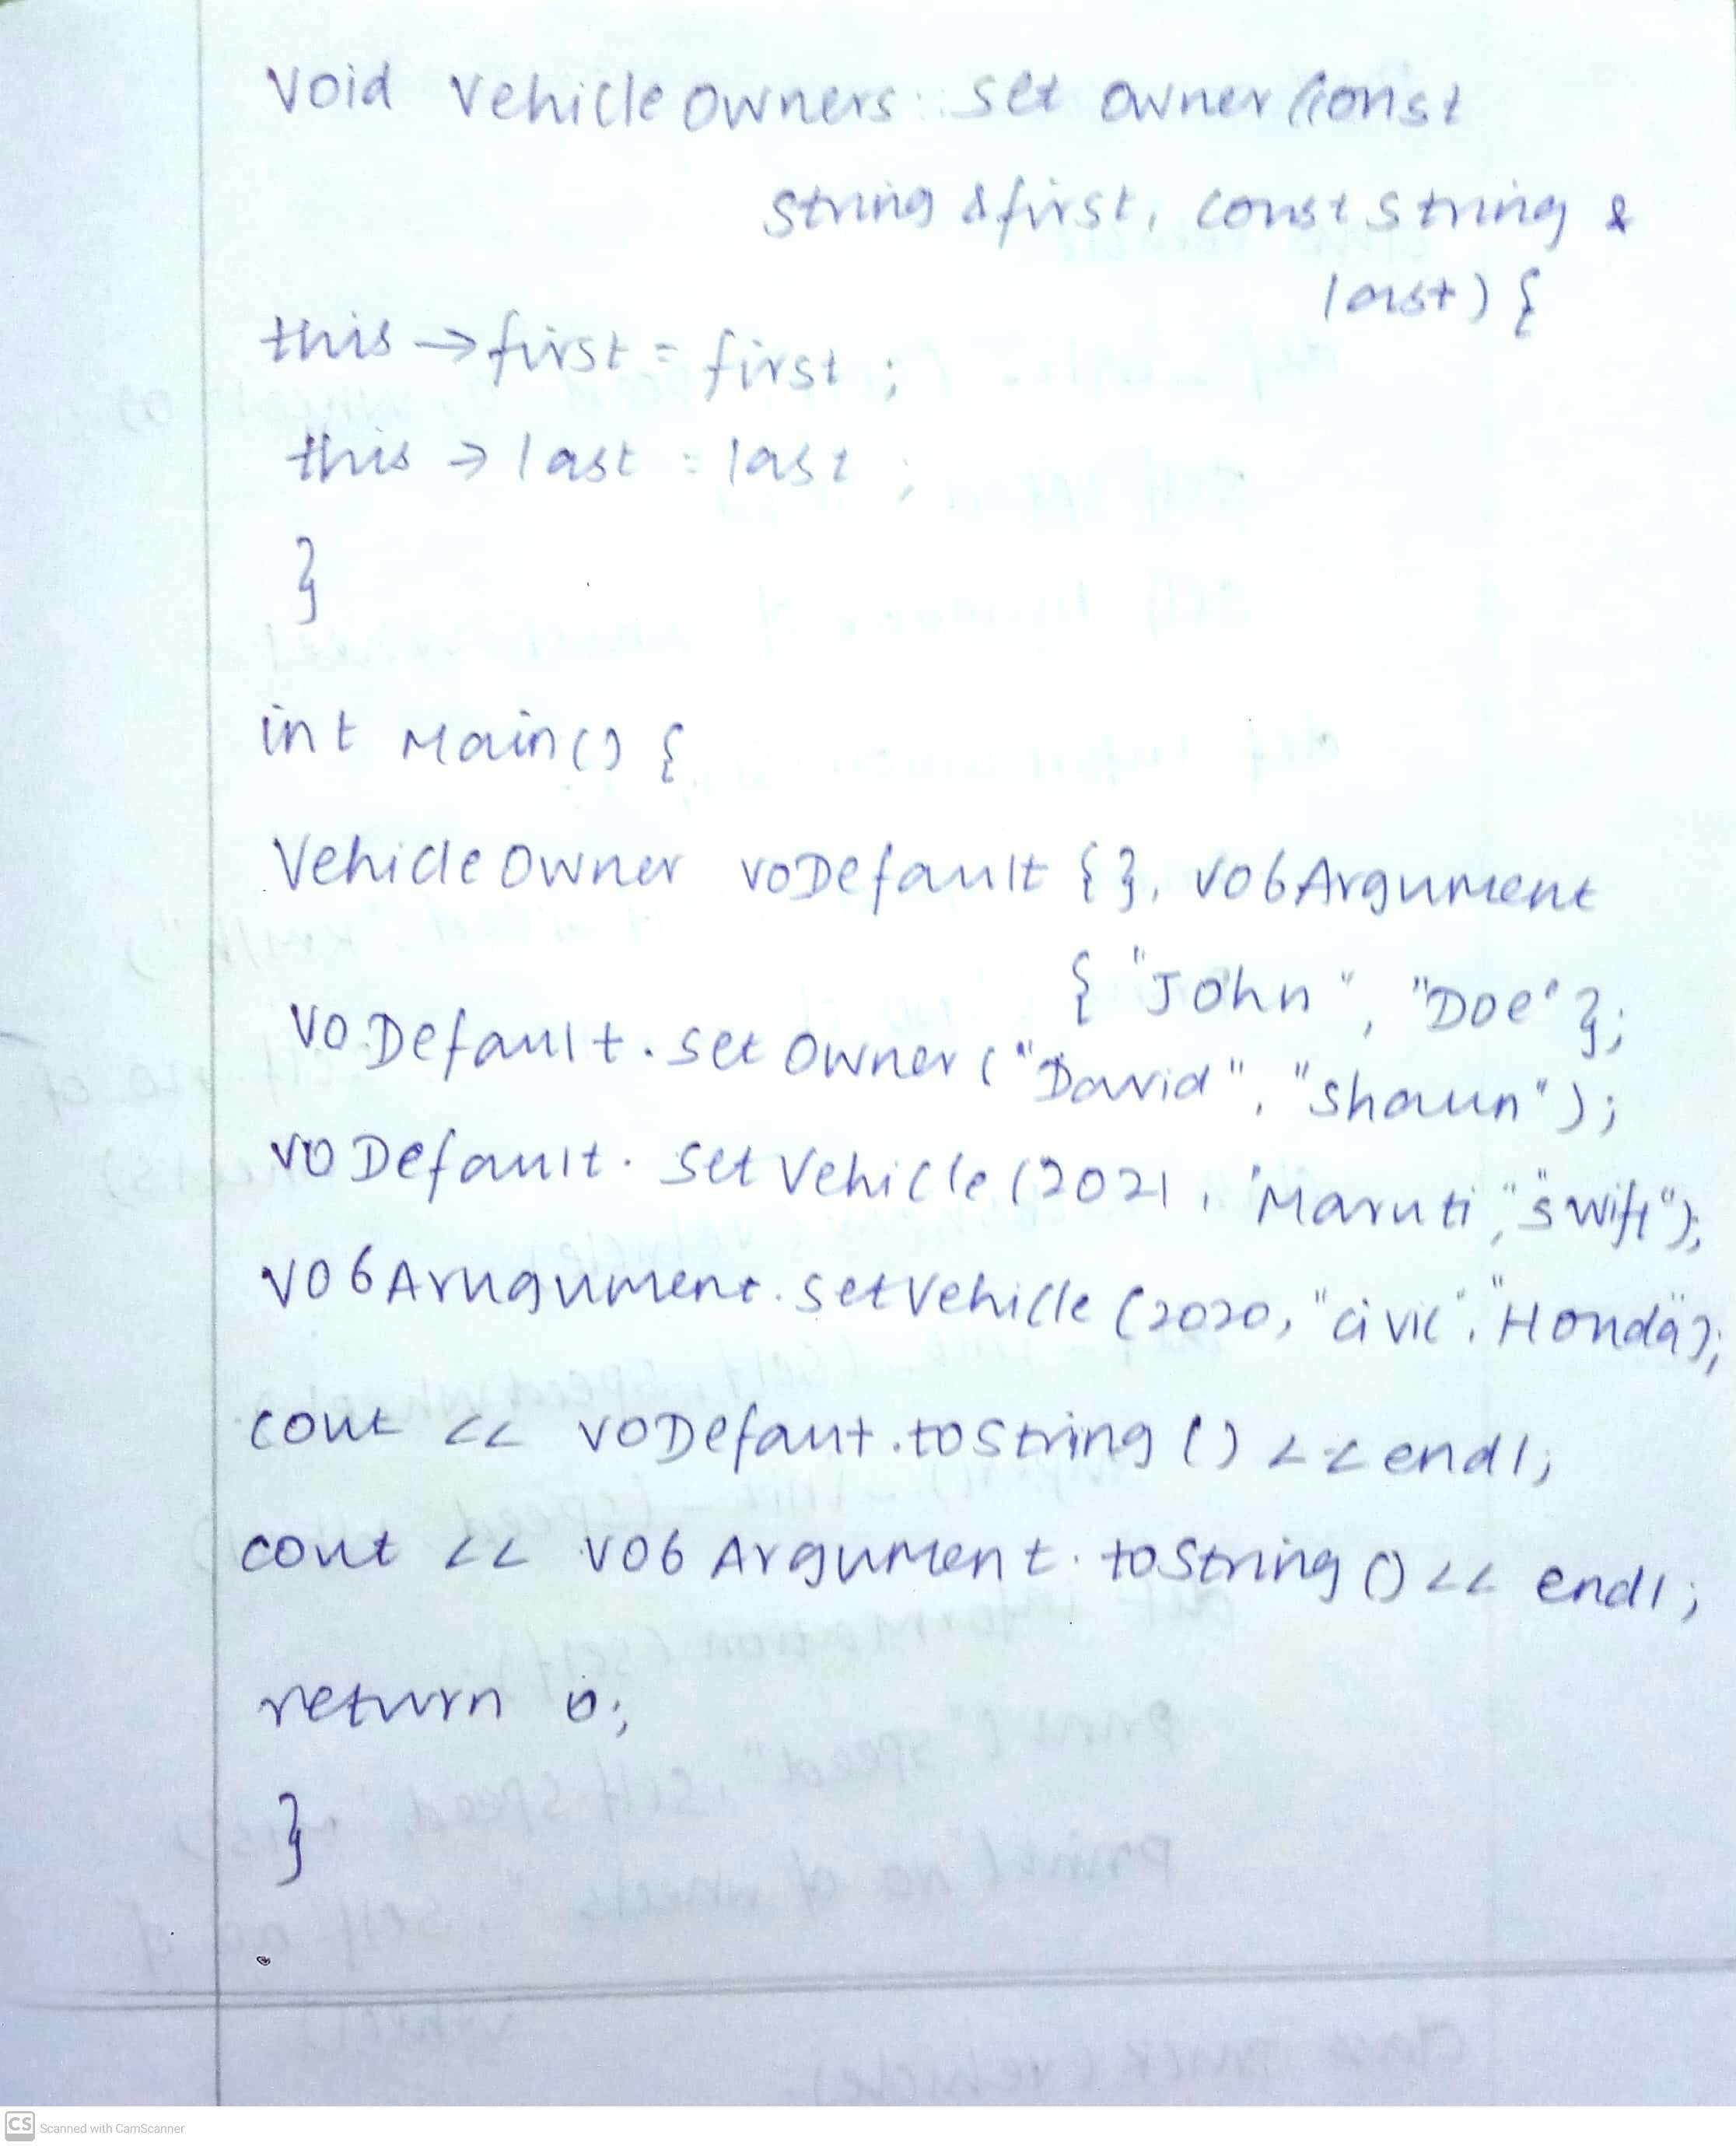 void vehicle owners :: set owner (const
string &first, const string &
last) {
this → first = first ;
this → last = last ;
}
int Main() {
Vehicle Owner voDefault {}, vo6Argument
{ "John", "Doe" };
VoDefault. set Owner ("David", "shaun");
voDefault. set Vehicle (2021, "Maruti", "swift");
vo6Arugument. setvehicle (2020, "civic", "Honda");
cout << voDefaut.toString () << endl;
cout << vo6 Argument. toString () << endl;
return 0;
}
CS Scanned with CamScanner